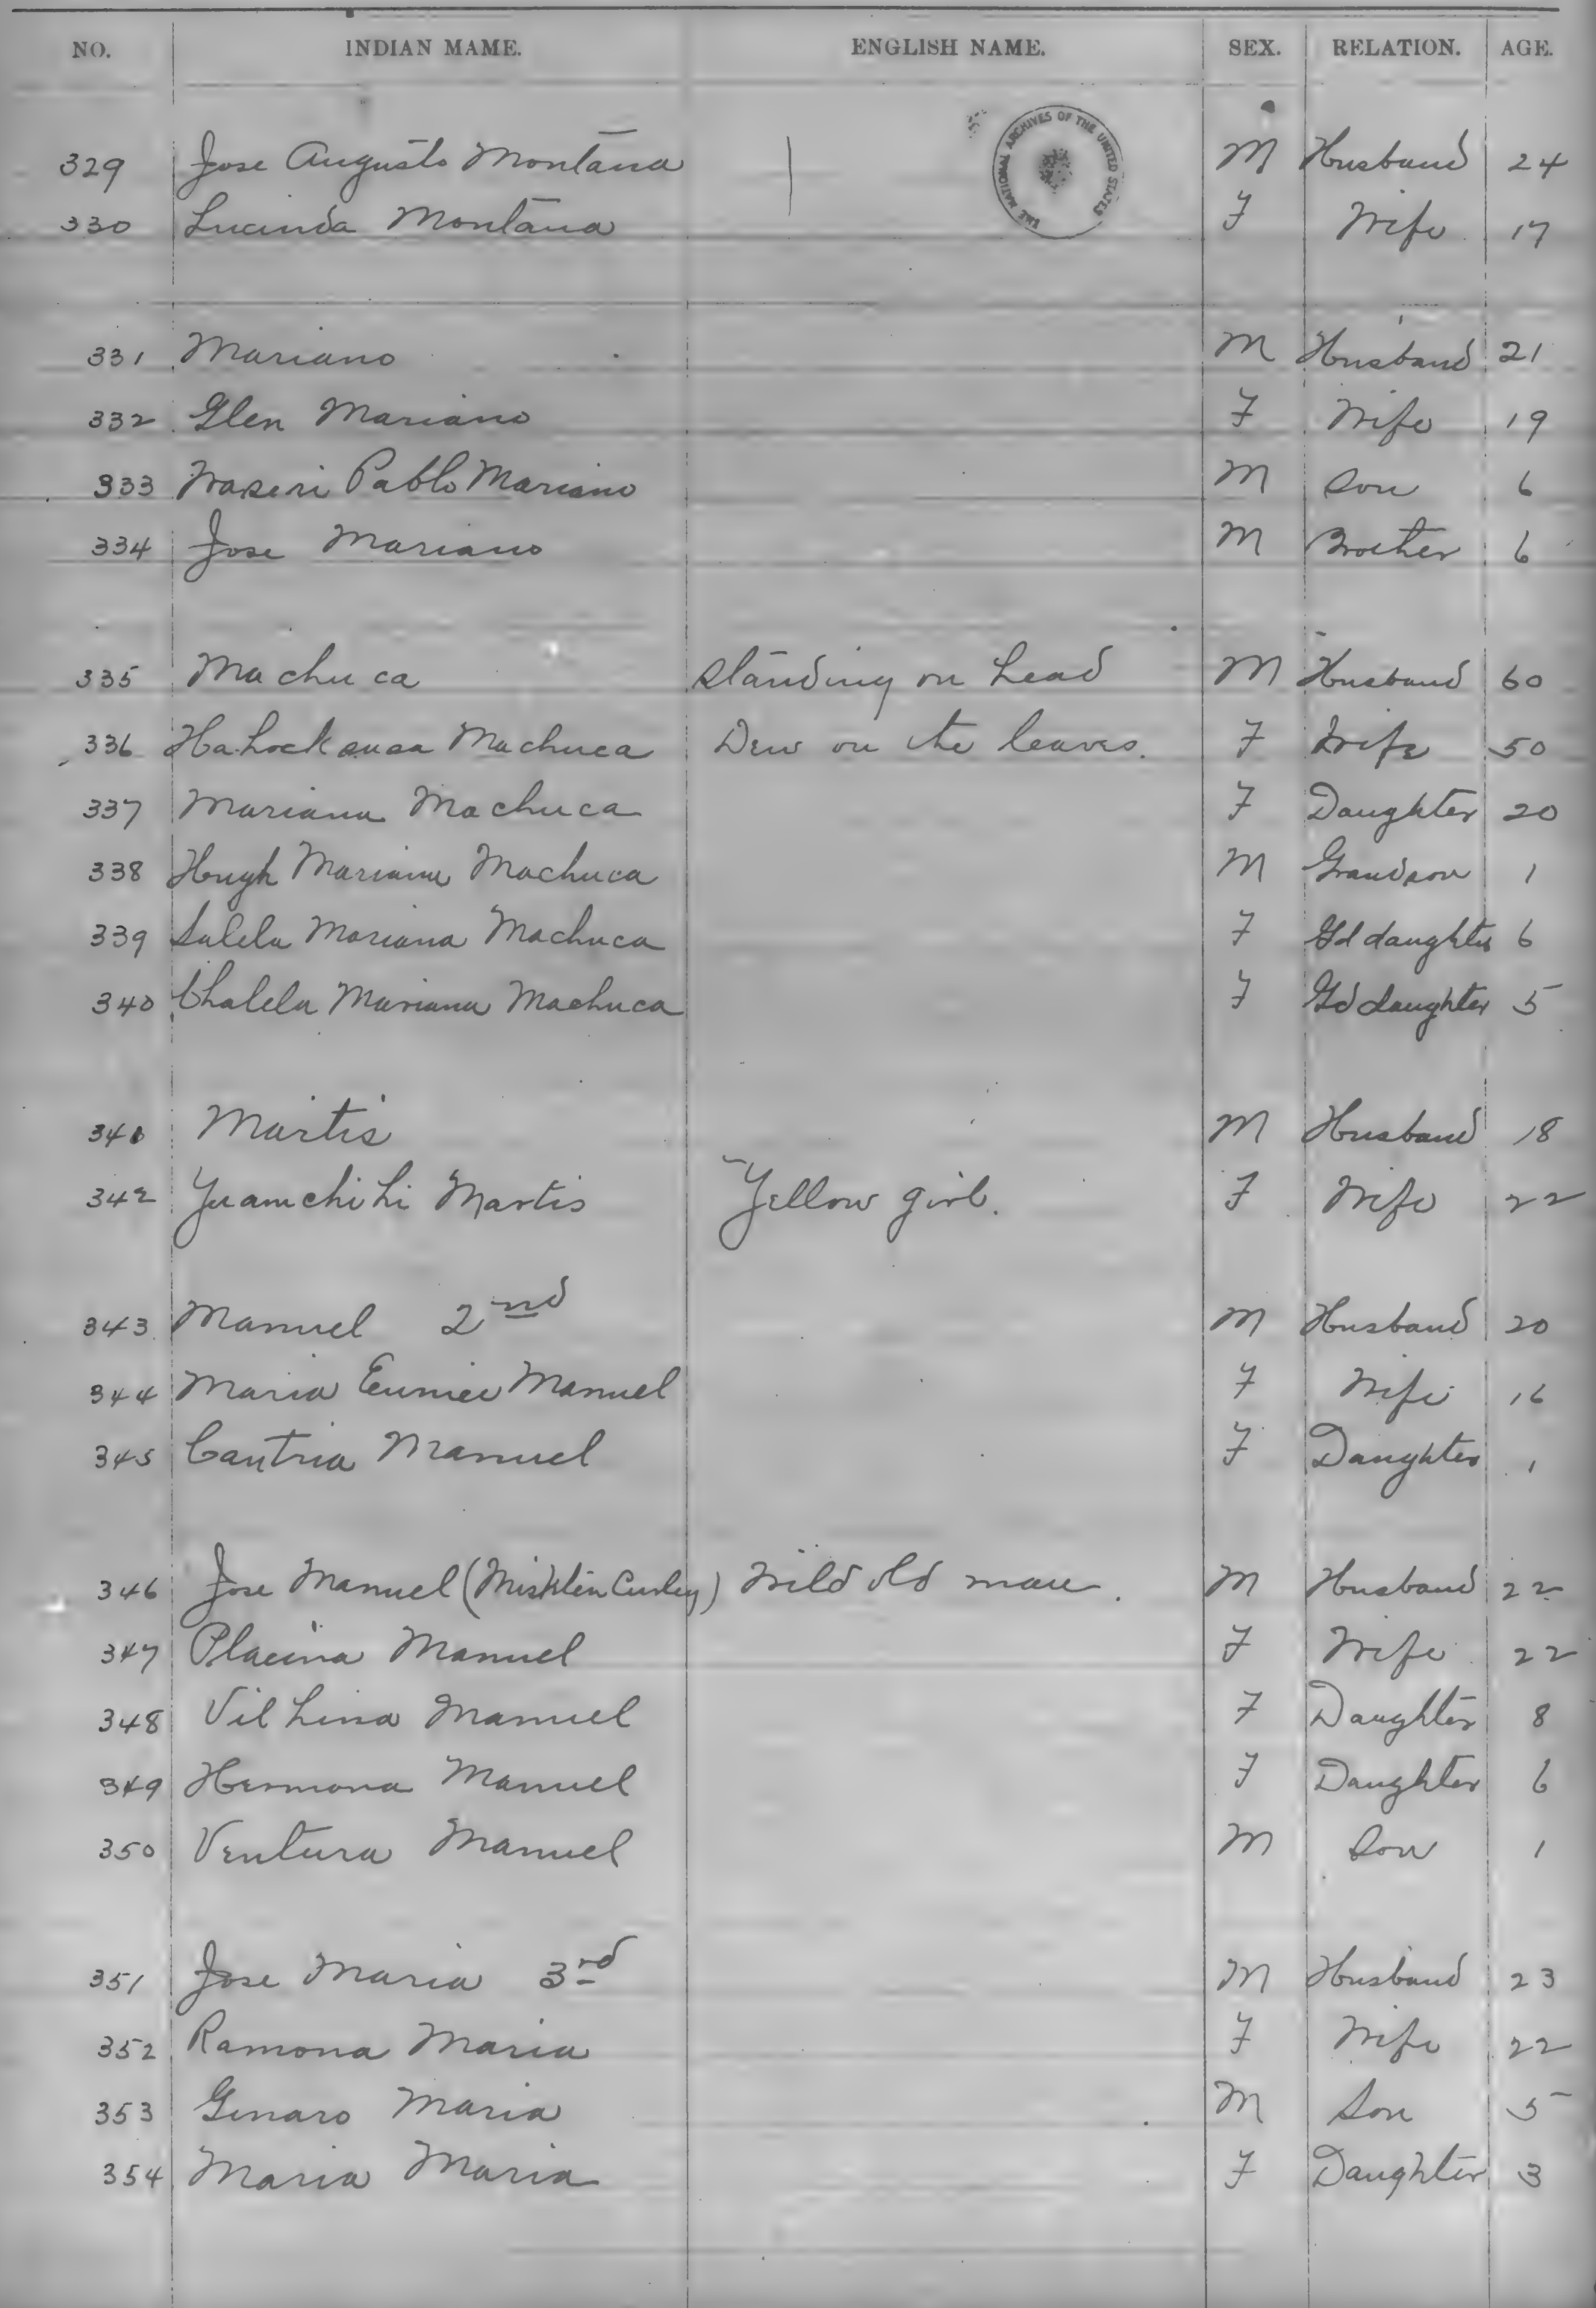 NO. INDIAN MAME. ENGLISH NAME. SEX. RELATION. AGE.
THE NATIONAL ARCHIVES OF THE UNITED STATES
329 Jose Augusto Montana M Husband 24
330 Lucinda Montana F Wife 17
331 Mariano M Husband 21
332 Glen Mariano F Wife 19
333 Pablo Mariano M Son 6
334 Jose Mariano M Brother 6
335 Machuca Standing on head M Husband 60
336 Machuca Dew on the leaves. F Wife 50
337 Mariana Machuca F Daughter 20
338 Hugh Mariana Machuca M Grandson 1
339 Salela Mariana Machuca F Gd daughter 6
340 Chalela Mariana Machuca F Gd daughter 5
341 Martis M Husband 18
342 Yuamchihi Martis Yellow girl. F Wife 22
343 Manuel 2nd M Husband 20
344 Maria Eunice Manuel F Wife 16
345 Cautria Manuel F Daughter 1
346 Jose Manuel ( Curley) Wild old man. M Husband 22
347 Placina Manuel F Wife 22
348 Manuel F Daughter 8
349 Hermona Manuel F Daughter 6
350 Ventura Manuel M Son 1
351 Jose Maria 3rd M Husband 23
352 Ramona Maria F Wife 22
353 Genaro Maria M Son 5
354 Maria Maria F Daughter 3